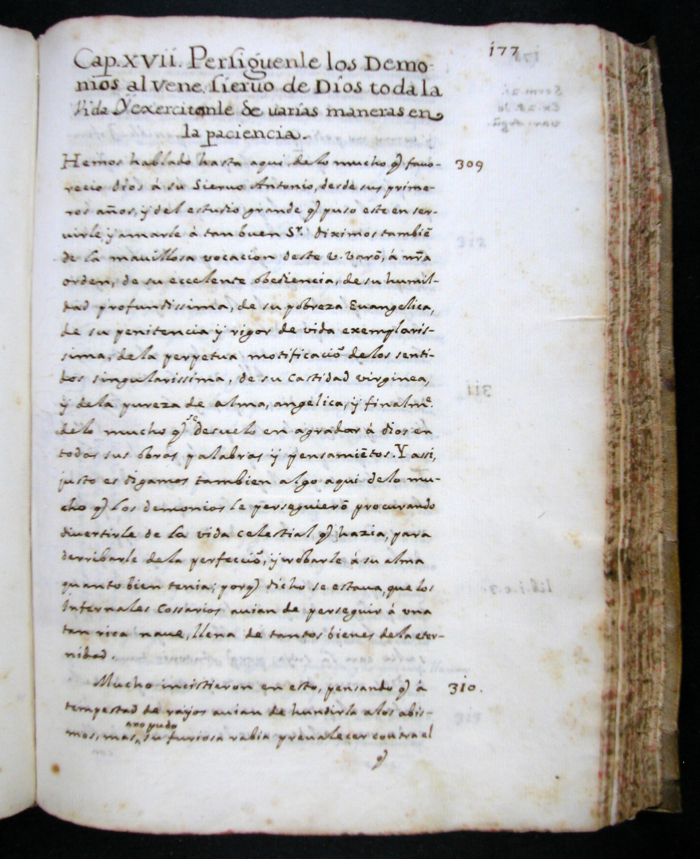 177
Cap. xvii. Persiguenle los Demo-
nios al Vene. sieruo de Dios toda la
Vida Y exercitanle de uarias maneras en
la paciencia.
Hemos hablado hasta aqui, de lo mucho q̃ fauo- 309
recio dios á su Sieruo Antonio, desde sus prime-
ros años, y del estudio grande q̃ puso este en ser-
uirle, y amarle á tan buen Sr. Diximos tambiẽ
de la marauillosa vocacion deste v. varõ, á nr̃a
orden, de su excelente obediencia, de su humil-
dad profundissima, de su pobreza Euangelica,
de su penitencia y rigor de vida exemplaris-
sima, de la perpetua mortificaciõ de los senti-
dos singularissima, de su Castidad virginea,
y de la pureza de alma, angelica, y finalme.
de lo mucho q̃ se desuelo en agradar á dios en
todas sus obras palabras y pensamiẽtos. Y assi,
justo es digamos tambien algo aqui de lo mu-
cho q̃ los demonios le perseguierõ procurando
diuertirle de la vida celestial q̃ hazia, para
derribarle de la perfecciõ, y robarle á su alma
quanto bien tenia; porq̃ dicho se estaua, que los
infernales Cossarios auian de perseguir á vna
tan rica naue, llena de tantos bienes de la eter-
nidad.
Mucho insistieron en esto, pensando q̃ á 310.
tempestad de rayos auian de hundirla a los abis-
mos, mas, no pudo su furiosa rabia preualecer contra el
q̃